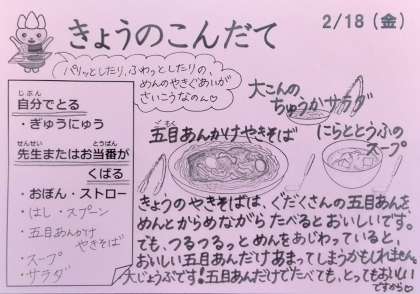 きょうのこんだて
2/18(金)
パリッとしたり、ふわっとしたりの、
めんのやきぐあいが
さいこうなのん♡
じぶん
自分でとる
・ぎゅうにゅう
せんせい とうばん
先生またはお当番が
くばる
・おぼん・ストロー
・はし・スプーン
・五目あんかけ
やきそば
・スープ
・サラダ
大こんの
ちゅうかサラダ
ごもく
五目あんかけやきそば
にらととうふの
スープ
きょうのやきそばは、ぐだくさんの五目あんを
めんとからめながらたべるとおいしいです。
でも、つるつるっとめんをあじわっていると、
おいしい五目あんだけあまってしまうかもしれません。
大じょうぶです!五目あんだけでたべても、とってもおいしい
ですから♡